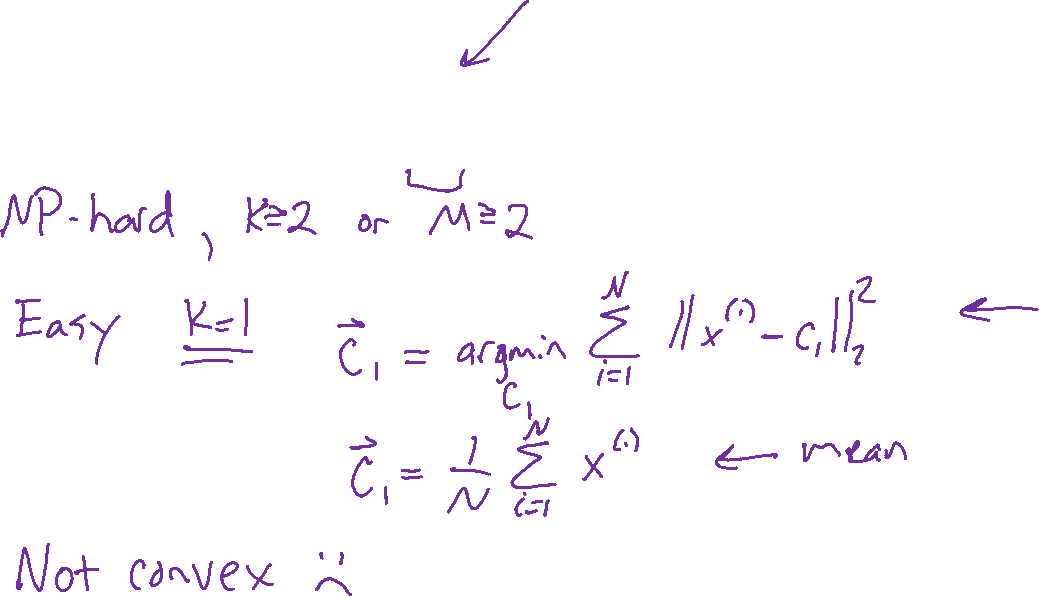 NP-hard, K≥2 or M≥2
Easy K=1 C⃗₁ = argmin_{C₁} ∑_{i=1}^{N} ||x⁽ⁱ⁾ - C₁||₂²
C⃗₁ = 1/N ∑_{i=1}^{N} x⁽ⁱ⁾ ← mean
Not convex :(